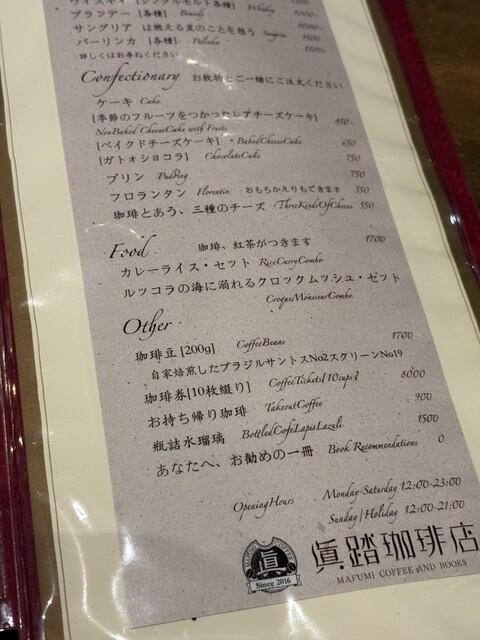 ウイスキイ [シングルモルト各種] Whisky
ブランデー [各種] Brandy
サングリア は燃える星のことを想う Sangria 1500
パーリンカ [各種] Palinka 1500~
詳しくはお尋ねください
Confectionary お飲物とご一緒にご注文ください
ケーキ Cake
[季節のフルーツをつかったレアチーズケーキ] 850~
NonBaked CheeseCake with Fruits
[ベイクドチーズケーキ] ・BakedCheeseCake 650
[ガトォショコラ] ChocolateCake 750
プリン Pudding 750
フロランタン Florentin おもちかえりもできます 550
珈琲とあう、三種のチーズ ThreeKindsOfCheese 550
Food 珈琲、紅茶がつきます 1700
カレーライス・セット RiceCurryCombo
ルッコラの海に溺れるクロックムッシュ・ゼット
CroqueMonsieurCombo
Other
珈琲豆 [200g] CoffeeBeans 1700
自家焙煎したブラジルサントスNo2スクリーンNo19
珈琲券[10枚綴り] CoffeeTickets[10cups] 8000
お持ち帰り珈琲 TakeoutCoffee 900
瓶詰水瑠璃 BottledCafeLapisLazuli 1500
あなたへ、お勧めの一冊 Book Recommendations 0
OpeningHours Monday-Saturday 12:00-23:00
Sunday|Holiday 12:00-21:00
眞
Since 2016
眞踏珈琲店
MAFUMI COFFEE AND BOOKS